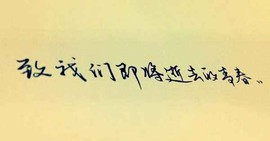 致我们即将逝去的青春..